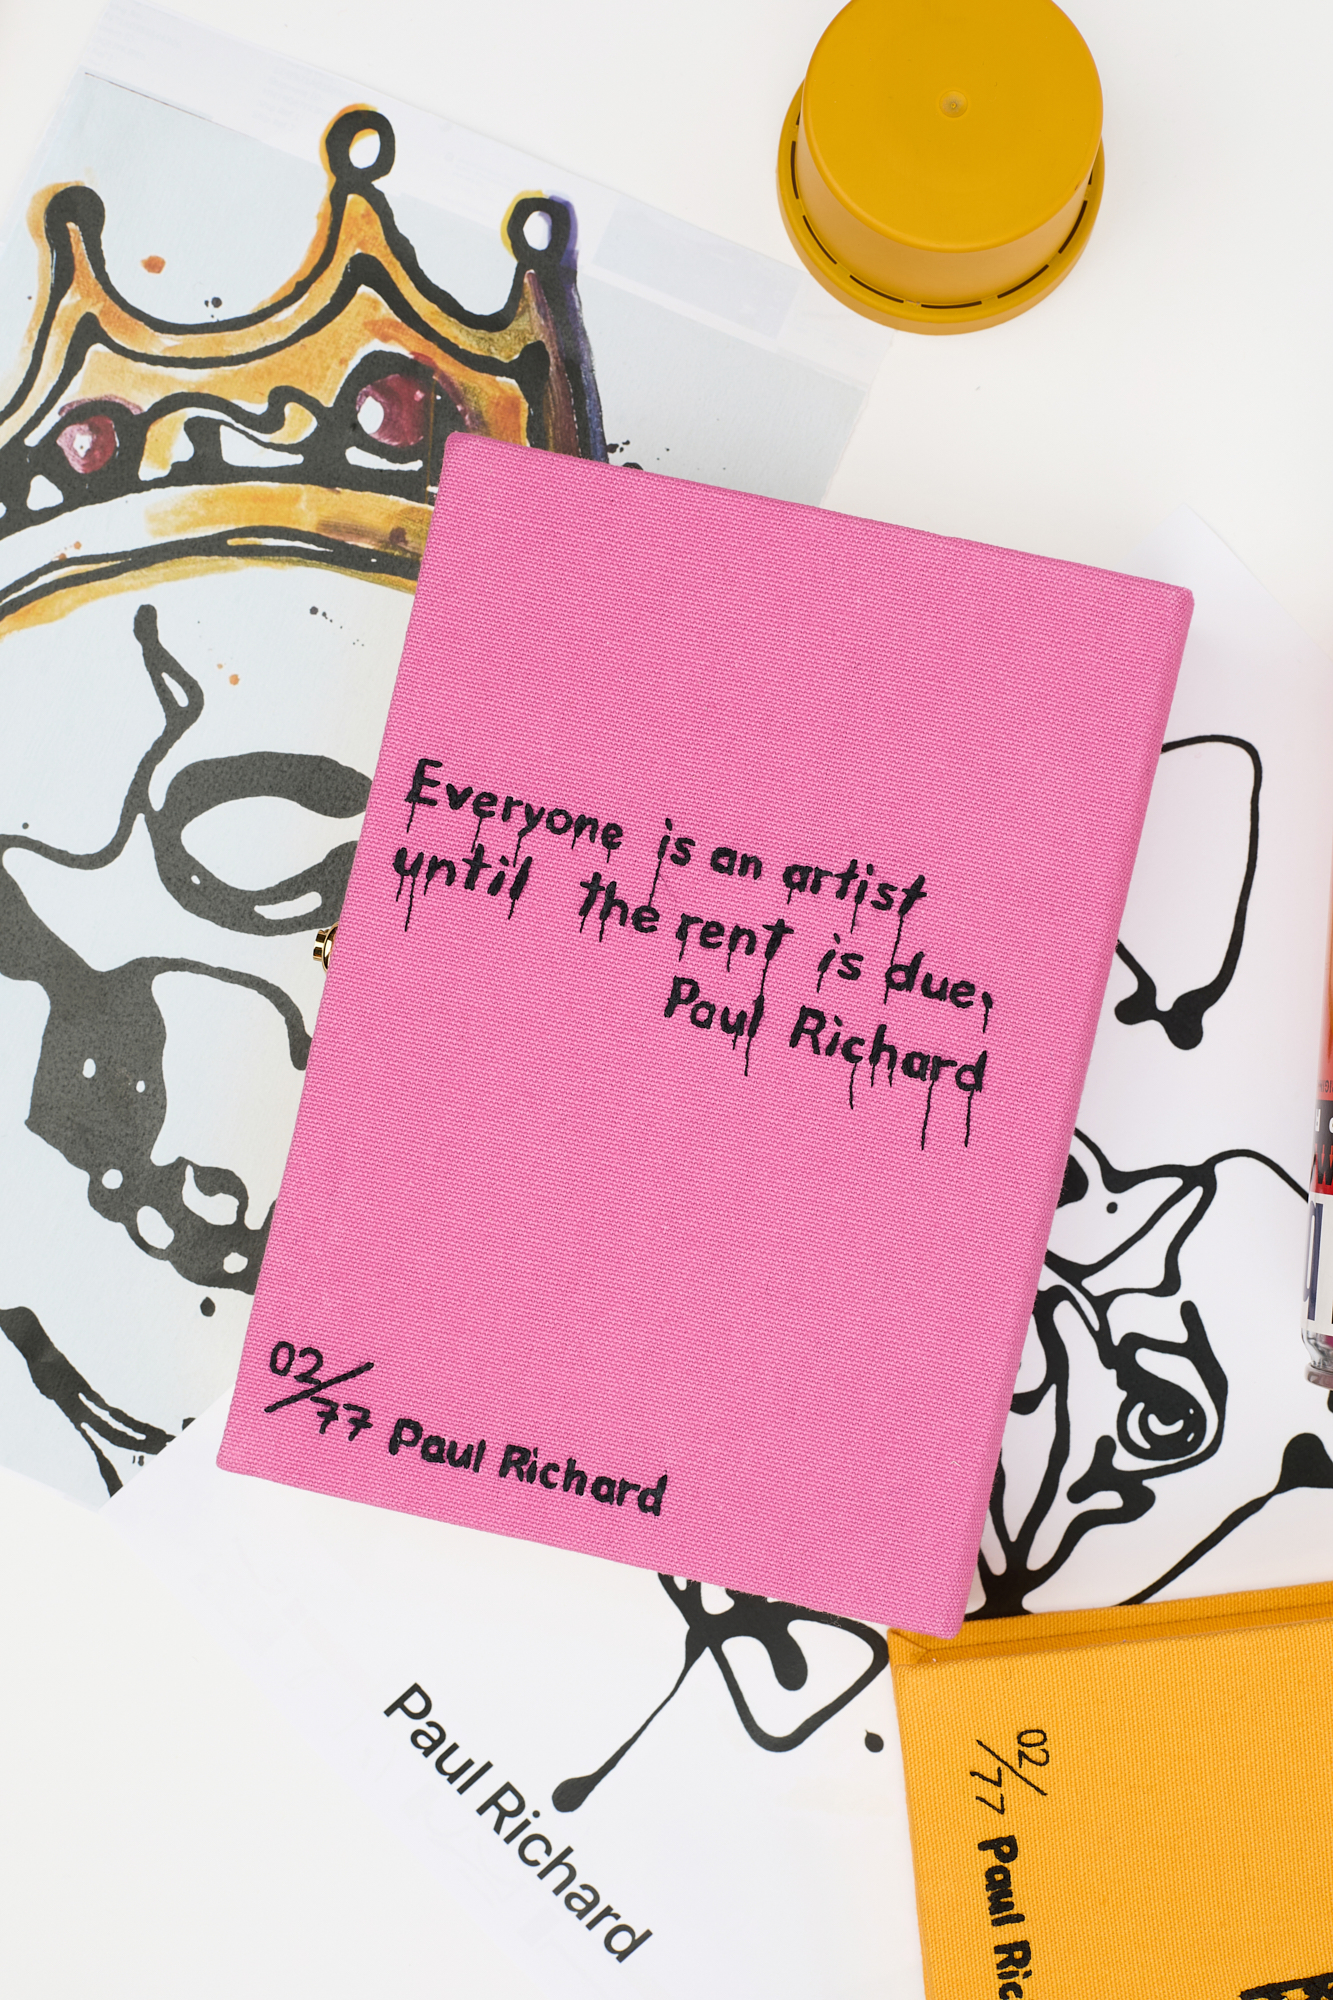 Everyone is an artist
until the rent is due,
Paul Richard
02/77 Paul Richard
Paul Richard
02/77 Paul Ric